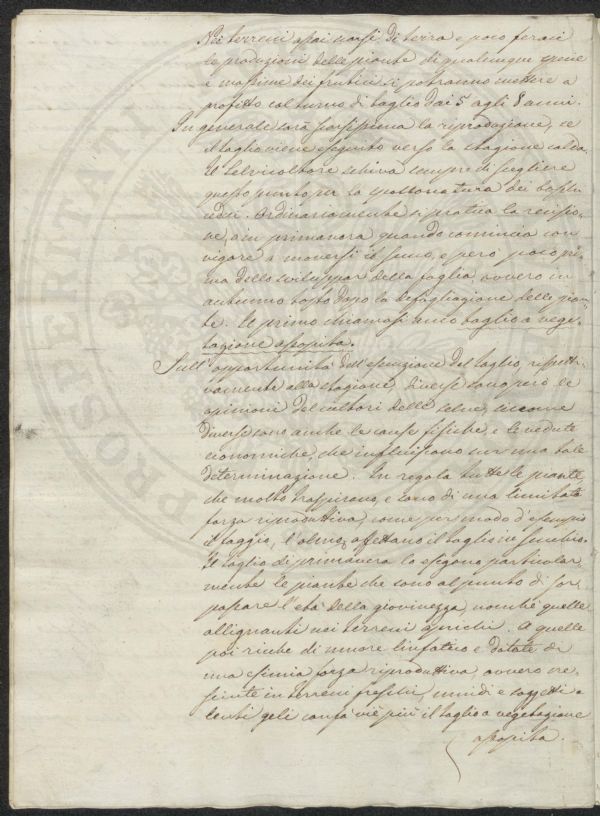 Nei terreni assai scarsi di terra e poco feraci
le produzioni delle piante di qualunque specie
e massime dei frutici si potranno mettere a
profitto col turno di taglio dai 5 agli 8 anni.
In generale sarà scarsissima la riproduzione, se
il taglio viene eseguito verso la stagione calda.
Il Selvicoltore schiva sempre di scegliere
questo punto per la spettonatura dei boschi
cedui. Ordinariamente si pratica la recisio-
ne, o in primavera quando comincia con
vigore a moversi il succo, e però poco pri-
ma dello sviluppar della foglia ovvero in
autunno tosto dopo la defogliazione delle pian-
te. Il primo chiamasi succo taglio a vege-
tazione assopita.
Sull'opportunità dell'esecuzione del taglio, rispetti-
vamente alla stagione, diverse sono però le
opinioni dei cultori delle selve, siccome
diverse sono anche le cause fisiche, e le vedute
economiche, che influiscono su una tale
determinazione. In regola tutte le piante,
che molto traspirano, e sono di una limitata
forza riproduttiva, come per modo d'esempio
il faggio, l'olmo, affettano il taglio in succhio.
Il taglio di primavera lo esigono particolar-
mente le piante che sono al punto di sor-
passare l'età della giovinezza, nonchè quelle
allignanti nei terreni aprichi. A quelle
poi ricche di umore linfatico e dotate di
una esimia forza riproduttiva, ovvero cre-
sciute in terreni freschi, umidi e soggetti a
lenti geli confà viè più il taglio a vegetazione
assopita.
PROSIT